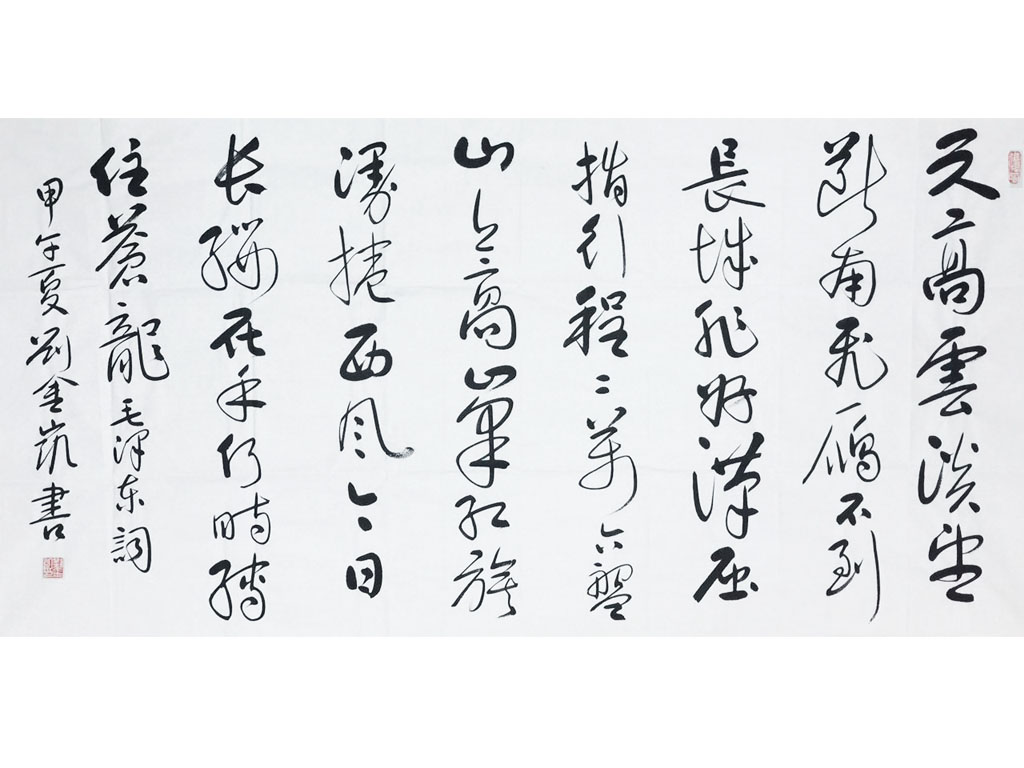 天高雲淡望
斷南飛雁不到
長城非好漢屈
指行程二萬六盤
山上高峯紅旗
漫捲西风今日
长纓在手何時縛
住蒼龍 毛澤东詞
甲午夏劉金凱書